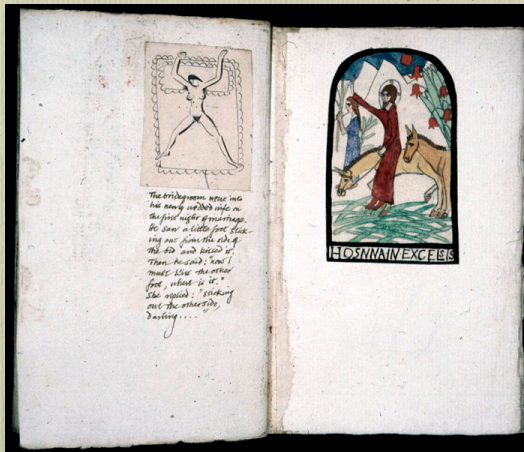 The bridegroom went into
his newly wedded wife on
the first night of marriage.
He saw a little foot stick-
ing out from the side of
the bed and kissed it.
Then he said: "now I
must kiss the other
foot, where is it."
She replied: "sticking
out the other side,
Darling....."
HOSNNAINEXCELSIS